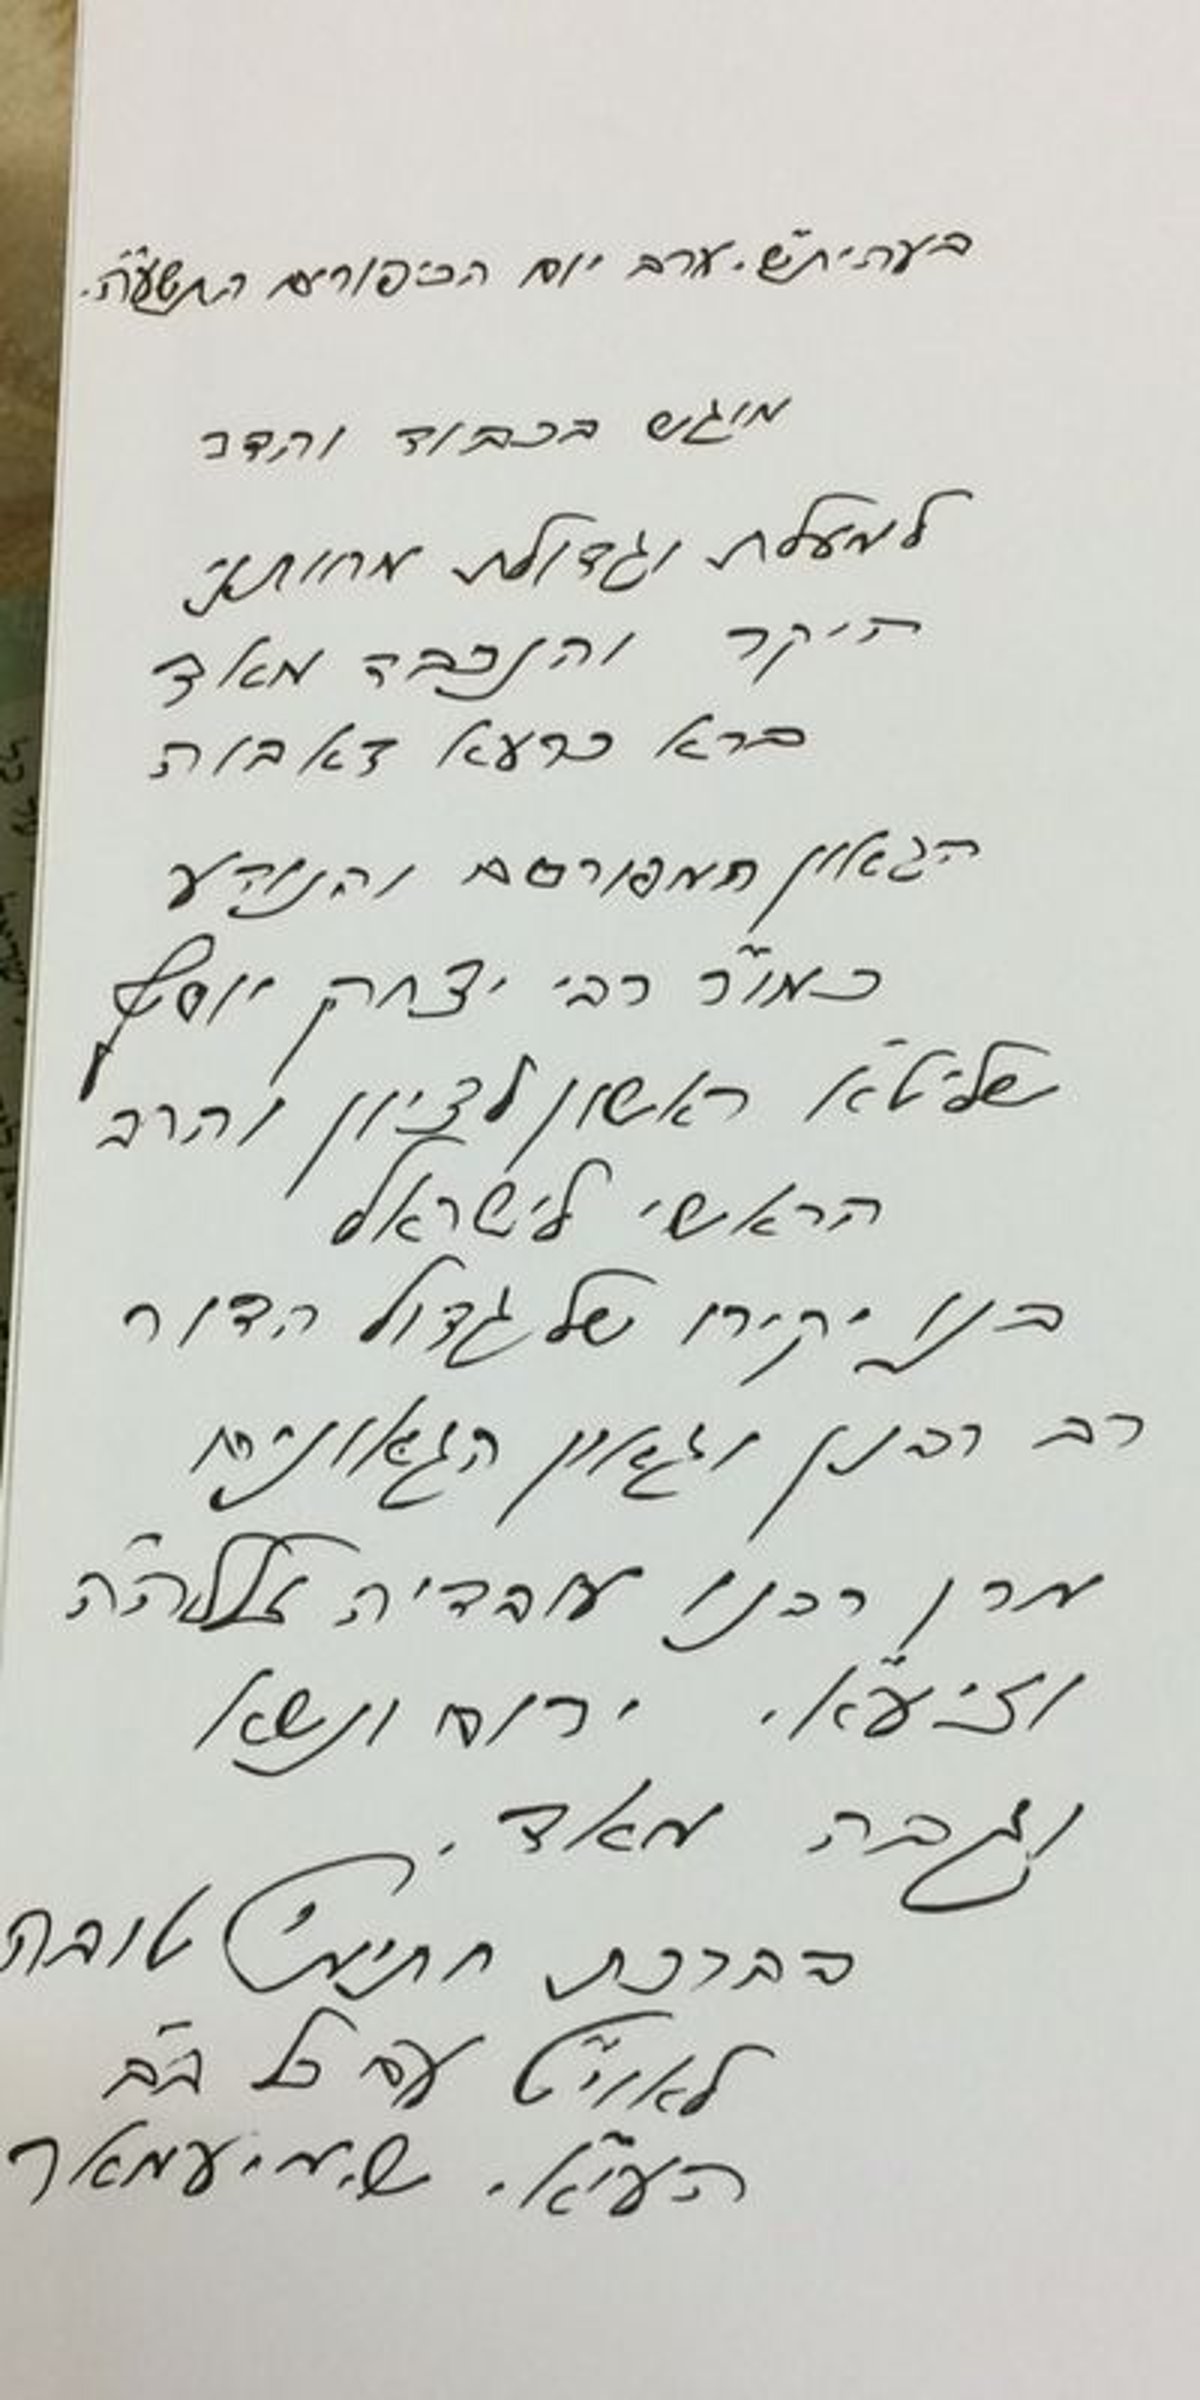 בעהית"ש. ערב יום הכיפורים התשע"ה.
מוגש בכבוד והדר
למעלת וגדולת מחותני
היקר והנכבד מאד
ברא כרעא דאבות
הגאון המפורסם והנודע
כמו"ר רבי יצחק יוסף
שליט"א ראשון לציון והרב
הראשי לישראל
בנו יקירו של גדול הדור
רב רבנן וגאון הגאונים
מרן רבנו עובדיה זללה"ה
וזיע"א. ירום ונשא
וגבה מאד.
בברכת חתימ' טובה
לאוי"ט עם כל ב"ב
העי"א.